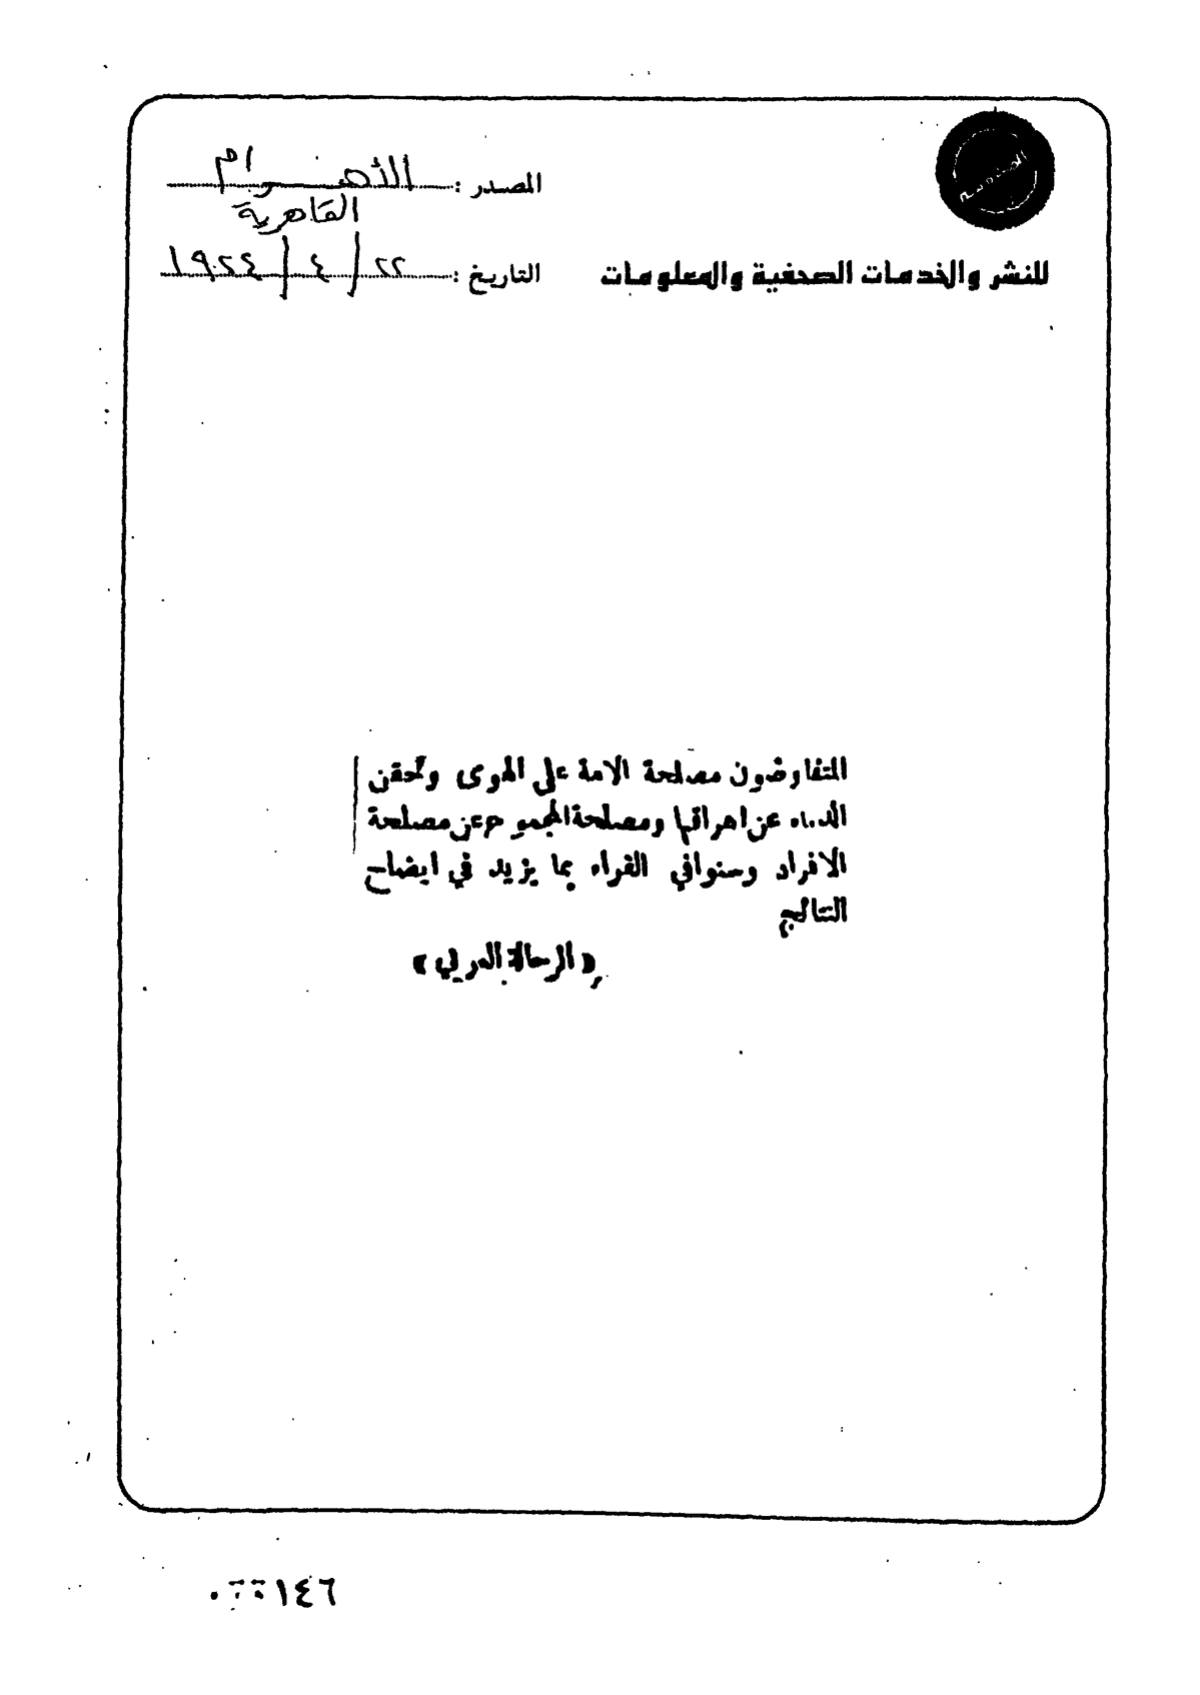 المصدر : الأهرام
القاهرية
للنشر والخدمات الصحفية والمعلومات
التاريخ : ٢٢ / ٤ / ١٩٢٤
المتفاوضون مصلحة الامة على الهوى وتحقن
الدماء عن اهراقها ومصلحة المجموع عن مصلحة
الافراد وسنوافي القراء بما يزيد في ايضاح
النتائج
« الرحالة العربي »
١٤٦